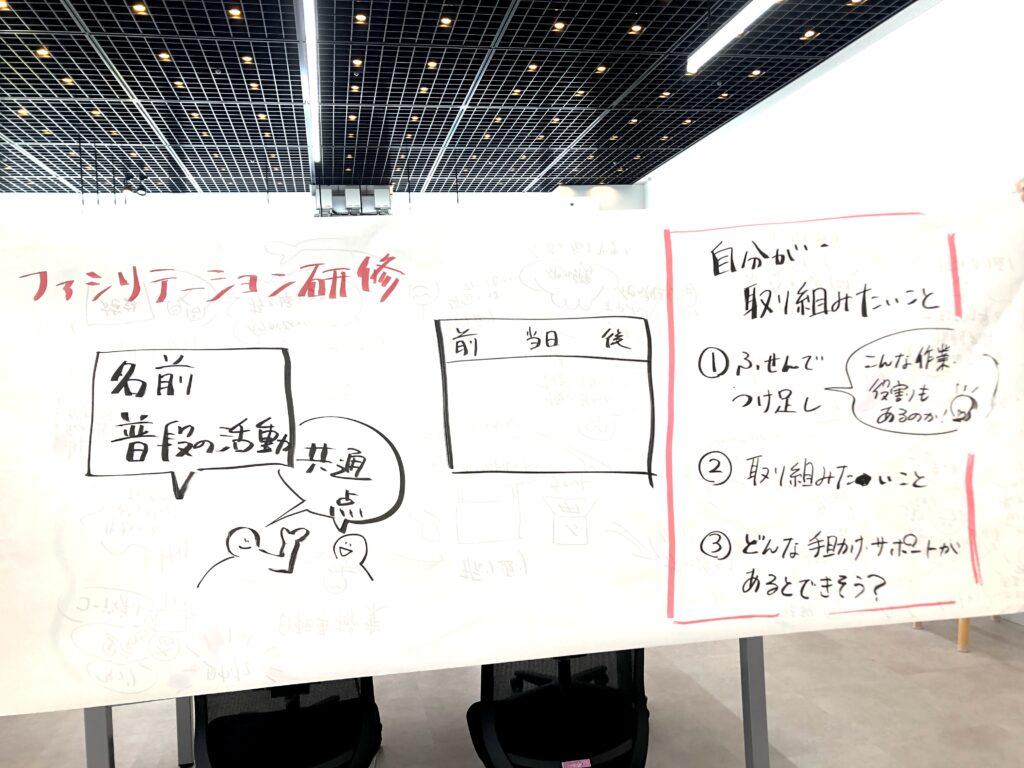 ファシリテーション研修
名前
普段の活動
共通
点
前 当日 後
自分が‥
取り組みたいこと
① ふせんで
つけ足し
こんな作業・
役割も
あるのか!
② 取り組みたいこと
③ どんな手助け・サポートが
あるとできそう?